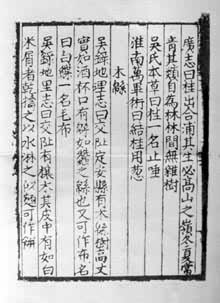 廣志曰桂出合浦其生必高山之嶺冬夏常
青其類自為林林間無雜樹
吳氏本草曰桂一名止唾
淮南萬畢術曰結桂用葱
木緜
吳録地理志曰交阯定安縣有木緜樹高丈
實如酒杯口有緜如蠶之緜也又可作布名
曰白緤一名毛布
吳録地理志曰交阯有欀木其皮中有如白
米屑者乾擣之以水淋之似麵可作餅